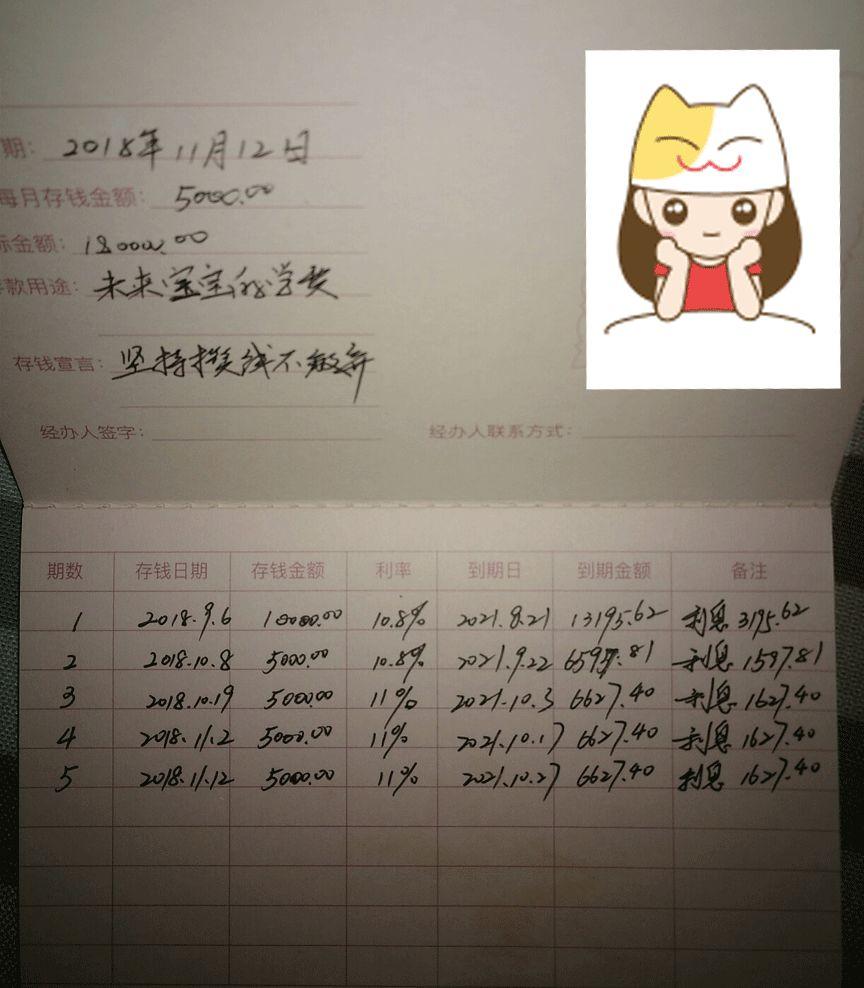 期: 2018年11月12日
每月存钱金额: 5000.00
标金额:
存款用途: 未来宝宝的学费
存钱宣言: 坚持攒钱不放弃
经办人签字: 经办人联系方式:
期数 存钱日期 存钱金额 利率 到期日 到期金额 备注
1 2018.9.6 10000.00 10.8% 2021.8.21 13195.62 利息 3195.62
2 2018.10.8 5000.00 10.8% 2021.9.22 6597.81 利息 1597.81
3 2018.10.19 5000.00 11% 2021.10.3 6627.40 利息 1627.40
4 2018.11.2 5000.00 11% 2021.10.17 6627.40 利息 1627.40
5 2018.11.12 5000.00 11% 2021.10.27 6627.40 利息 1627.40